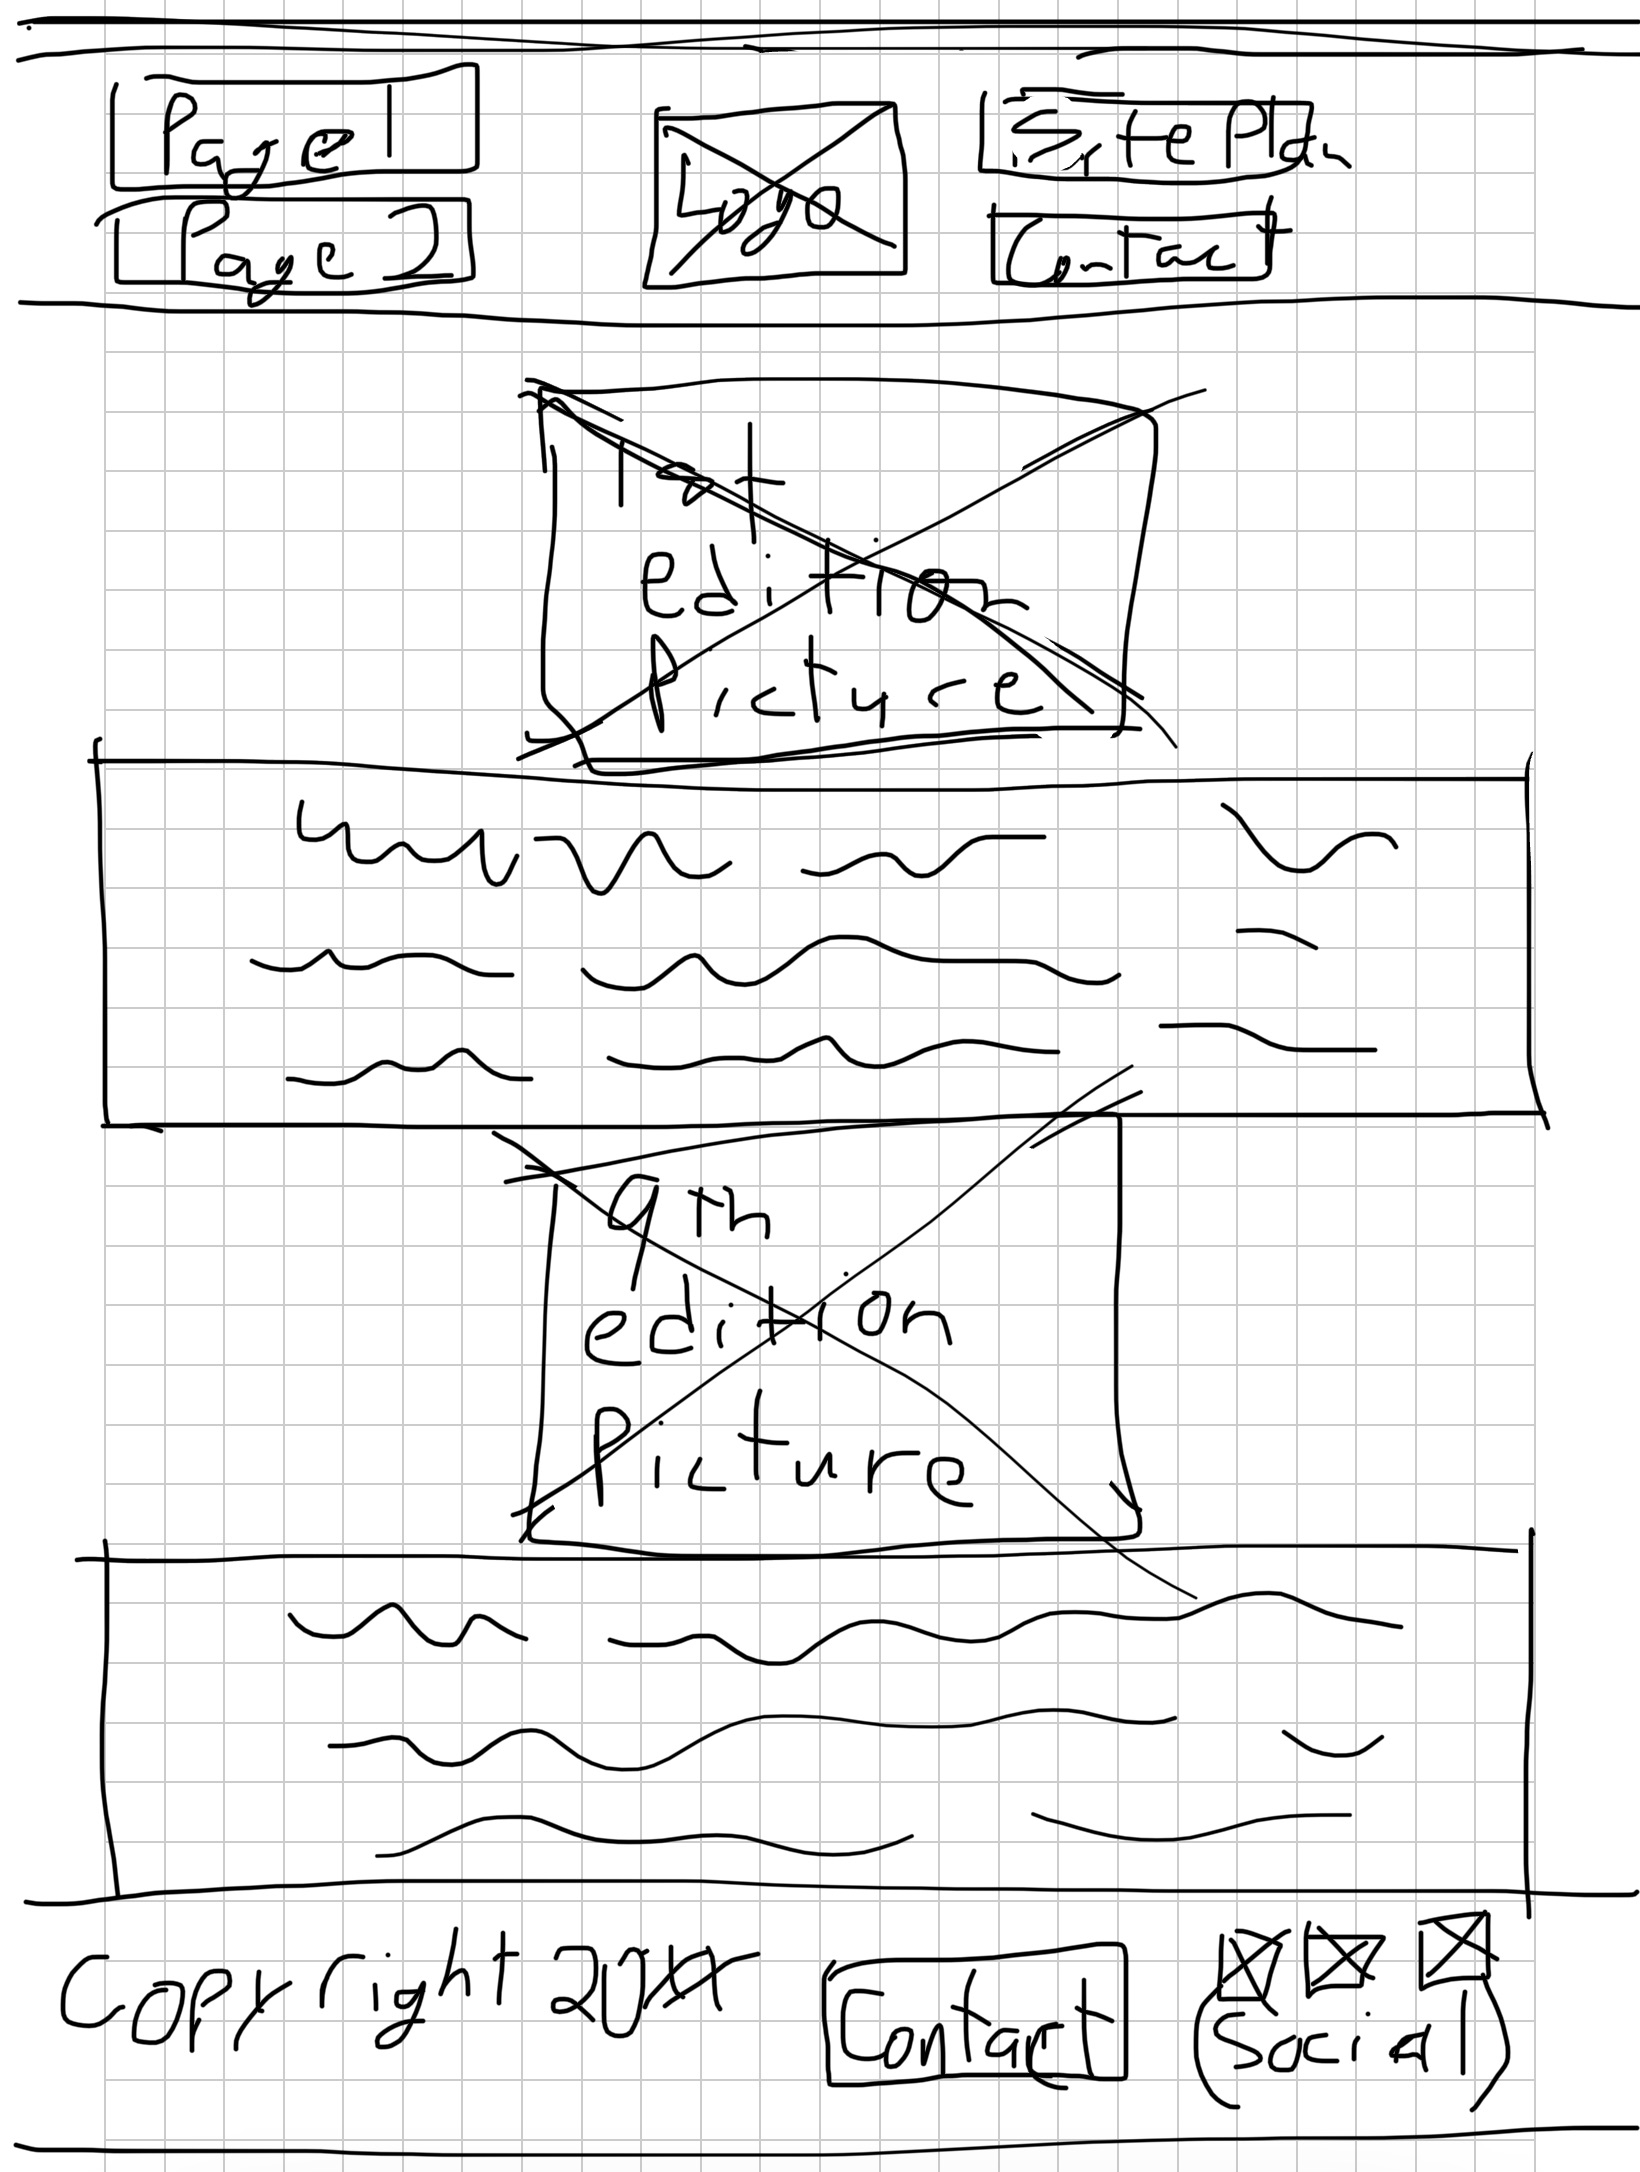 Page 1
Logo
Site Plan
Page 2
Contact
1st
edition
Picture
9th
edition
Picture
Copyright
Contact
(Social)